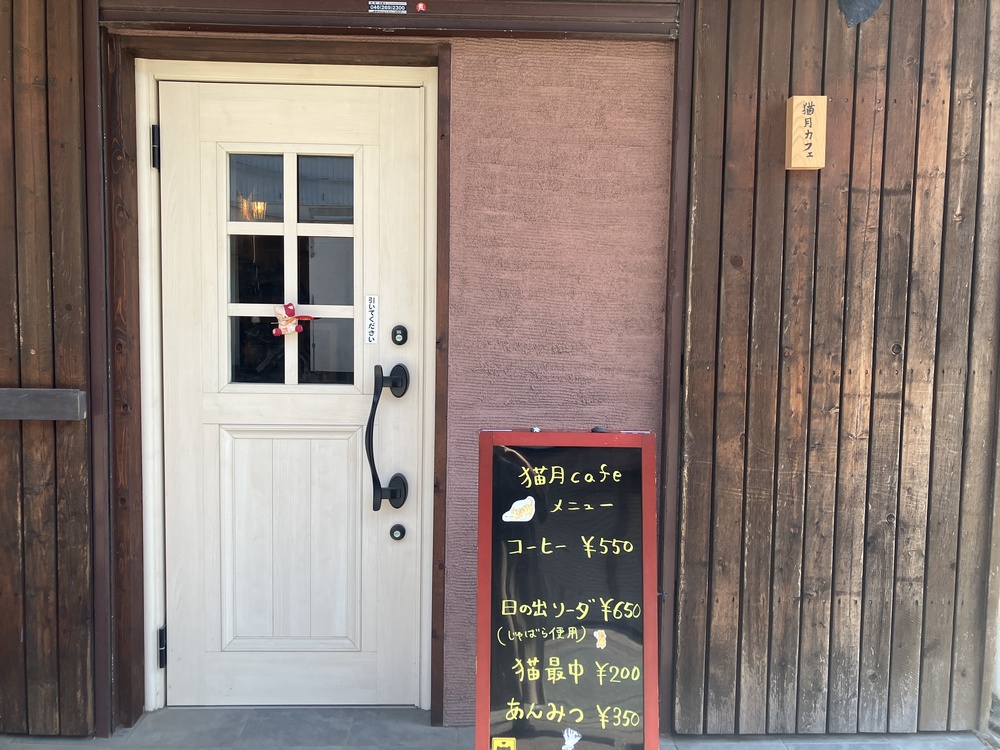 046(269)2300
猫月カフェ
引いてください
猫月cafe
メニュー
コーヒー ¥550
日の出ソーダ ¥650
(じゃばら使用)
猫最中 ¥200
あんみつ ¥350